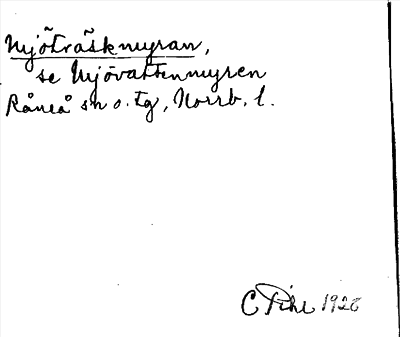 Mjöträskmyran,
se Mjövattenmyren
Råneå sn o. tg, Norrb. l.
C Pihl 1926